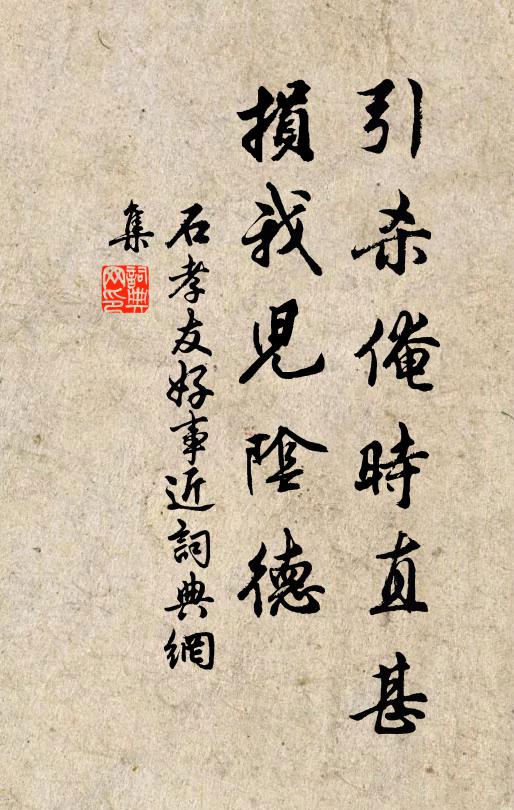 引杀俺時直甚
損我児陰德
石孝友好事近詞典網
集
詞典网印